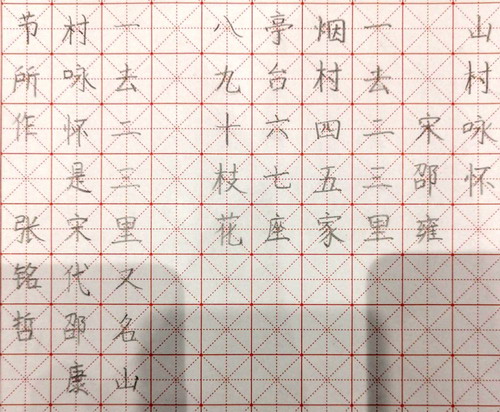 山村咏怀
宋邵雍
一去二三里
烟村四五家
亭台六七座
八九十枝花
一去二三里又名山
村咏怀是宋代邵康
节所作 张铭哲